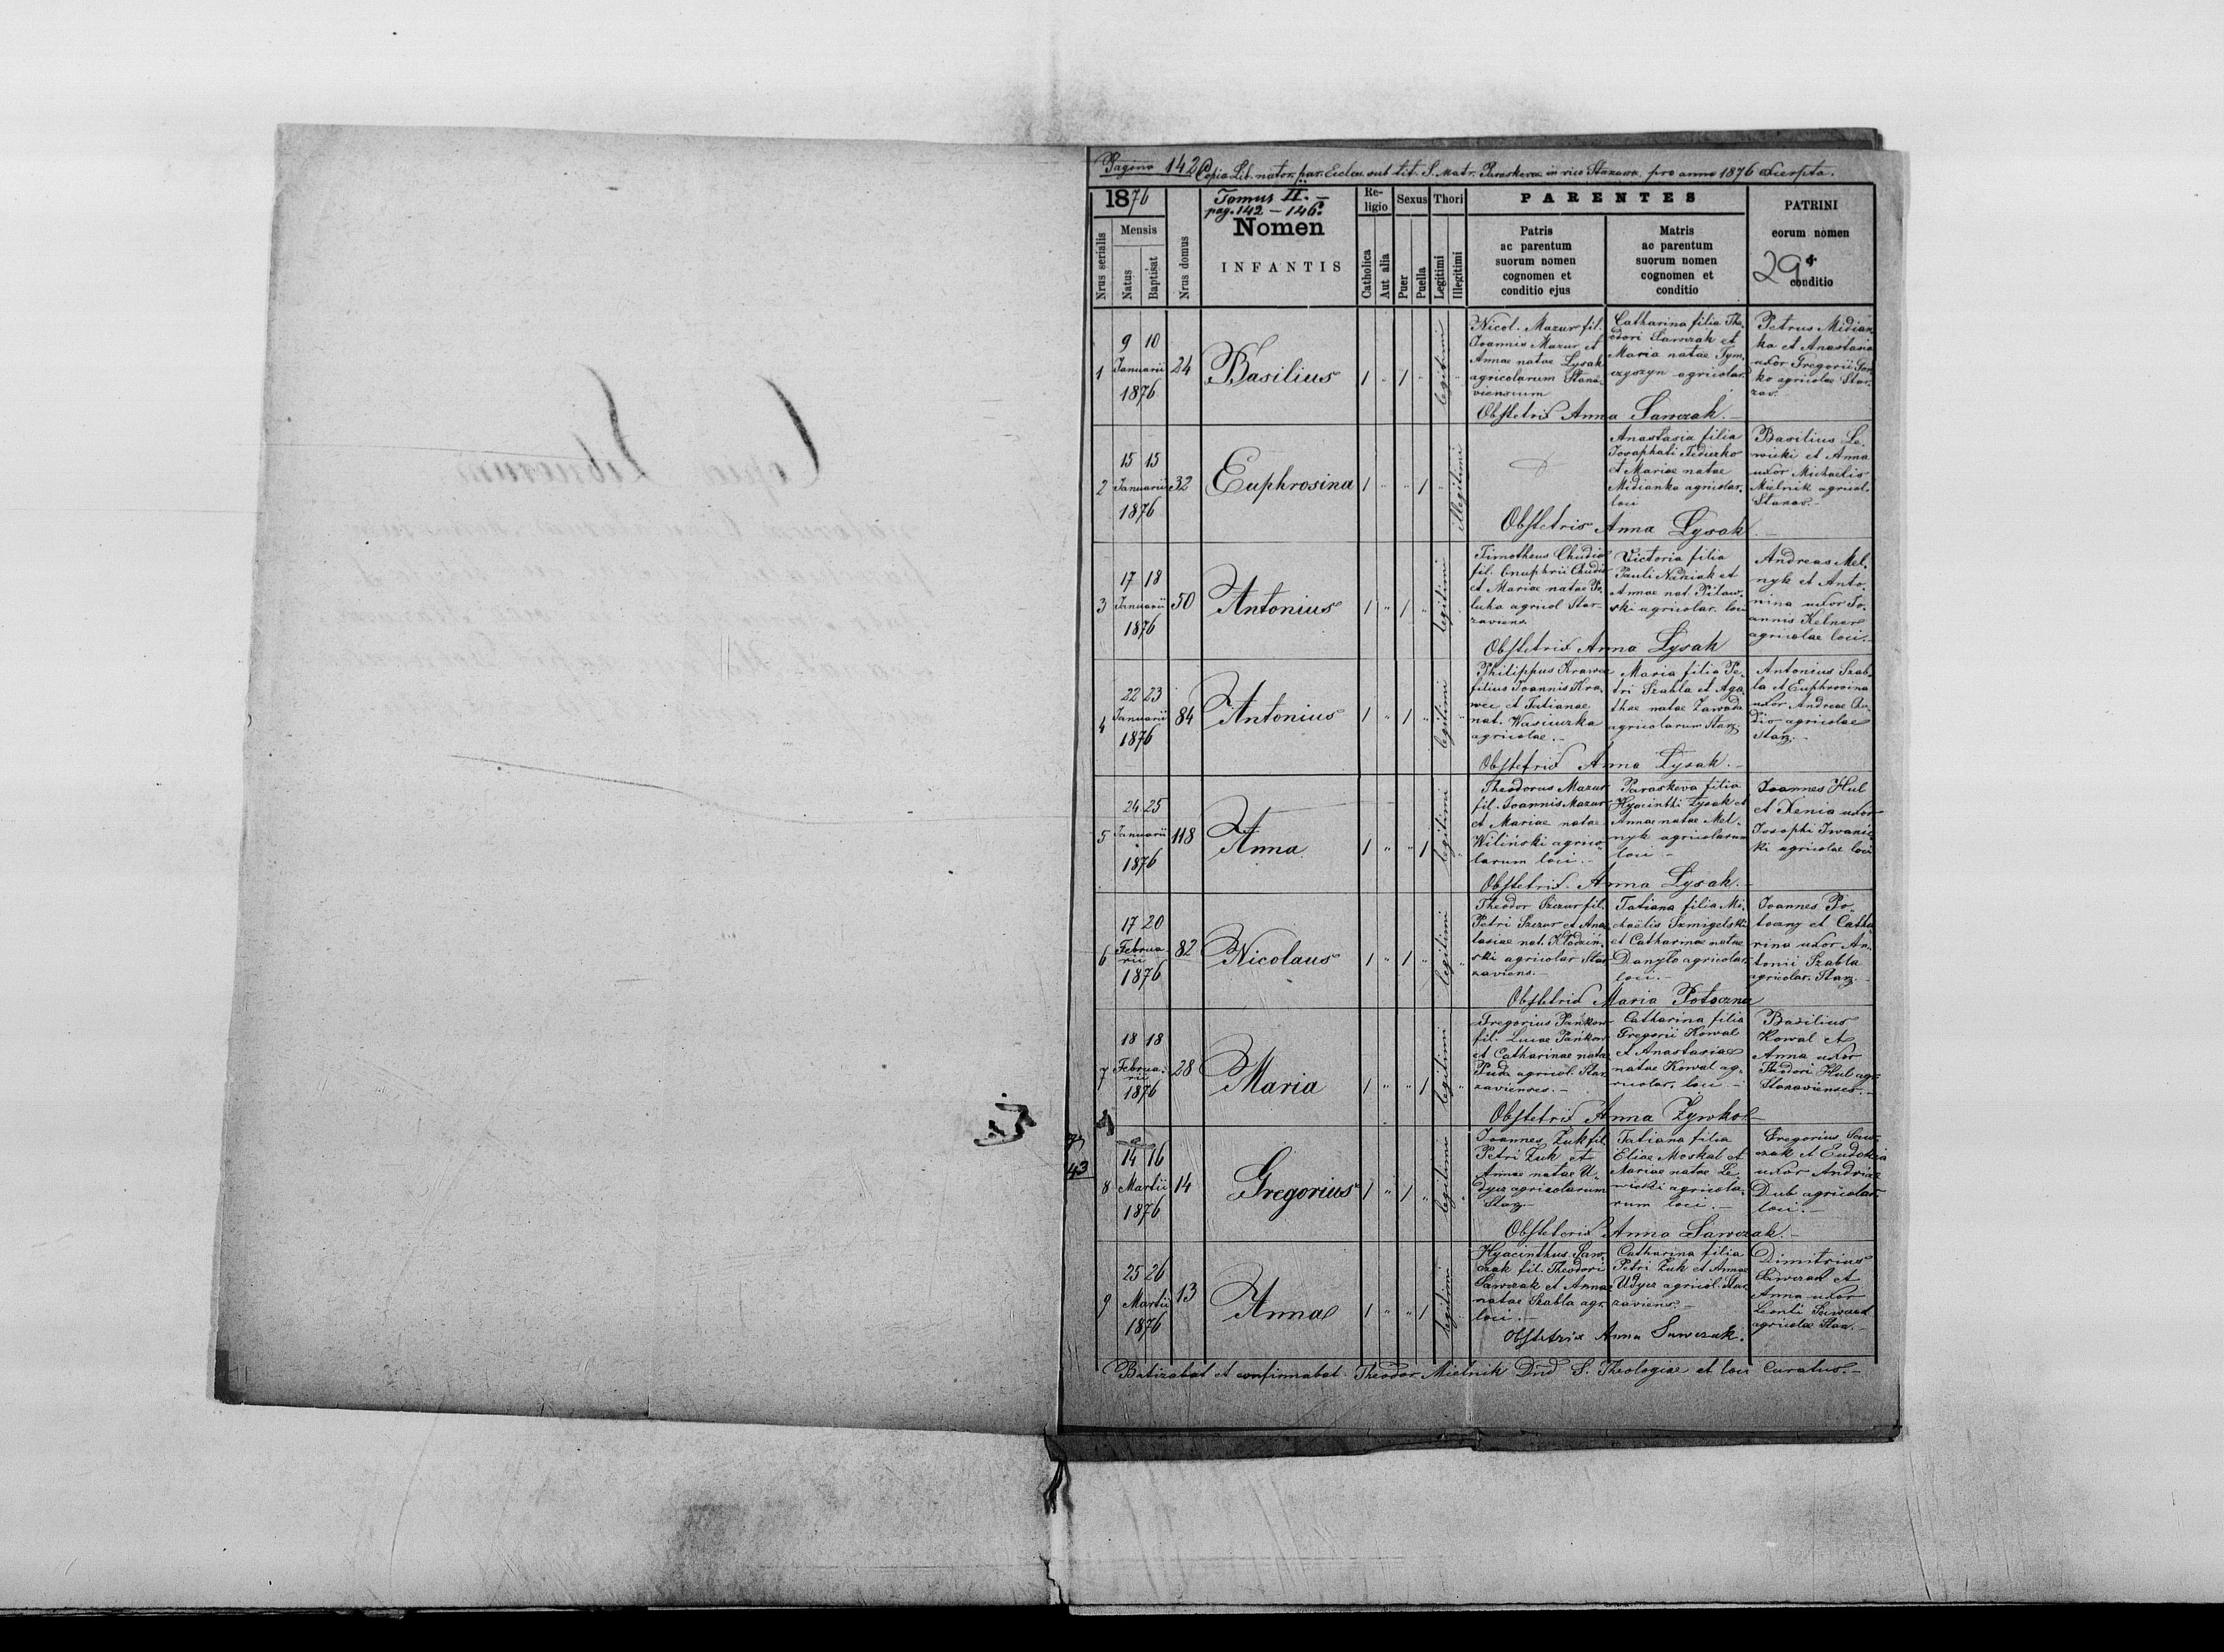 Pagina 142 Copia Lib. nator. par. Eccles. sub tit. S. Matr. Paraskevae in vico Starzawa pro anno 1876
1876
Tomus II. –
pag. 142 – 146.
Nrus serialis
Mensis
Natus
Baptisat
Nrus domus
Nomen
INFANTIS
Religio
Catholica
Aut alia
Sexus
Puer
Puella
Thori
Legitimi
Illegitimi
PARENTES
Patris
ac parentum
suorum nomen
cognomen et
conditio ejus
Matris
ac parentum
suorum nomen
cognomen et
conditio
PATRINI
eorum nomen
29
conditio
1
9 10
Januarii
1876
24
Basilius
1 " 1 "
legitimi
Nicol. Mazur fil.
Joannis Mazur et
Annae natae Lysak
agricolarum
Catharina filia Theo-
dori Sawczak et
Maria natae Tym-
czyszyn agricolar.
Petrus Midian-
ka et Anastasia
uxor Gregorii
ko agricolae Star-
zav.
Obstetrix Anna Sawczak. –
2
15 15
Januarii
1876
32
Euphrosina
1 " " 1
illegitimi
Anastasia filia
Josaphati Fediczko
et Mariae natae
Midianka agricolar.
loci
Basilius Le-
wicki et Anna
uxor Michaelis
Mielnik agricol.
Starzav. –
Obstetrix Anna Lysak. –
3
17 18
Januarii
1876
50
Antonius
1 " 1 "
legitimi
Timotheus Chudio
fil. Onuphrii Chudio
et Mariae natae Po-
luha agricol Star-
zaviens.
Victoria filia
Pauli Nizniak et
Annae nat. Pitaw-
ski agricolar. loci
Andreas Mel-
nyk et Anto-
nina uxor Jo-
annis Kelner
agricolae loci. –
Obstetrix Anna Lysak
4
22 23
Januarii
1876
84
Antonius
1 " 1 "
legitimi
Philippus Krawec
filius Joannis Kra-
wec et Tatianae
nat. Wasiuczka
agricolae. –
Maria filia Pe-
tri Szabla et Aga-
thae natae Zawada
agricolarum Starz.
Antonius Szab-
la et Euphrosina
uxor Andreae Chu-
dio agricolae
Starz. –
Obstetrix Anna Lysak. –
5
24 25
Januarii
1876
118
Anna
1 " " 1
legitimi
Theodorus Mazur
fil. Joannis Mazur
et Mariae natae
Wiliński agrico-
larum loci. –
Paraskeva filia
Hyacinthi Lysak et
Annae natae Mel-
nyk agricolarum
loci –
Joannes Hul
et Xenia uxor
Josephi Iwanic-
ki agricolae loci
Obstetrix. Anna Lysak. –
6
17 20
Februa-
rii
1876
82
Nicolaus
1 " 1 "
legitimi
Theodor Szczur fil.
Petri Szczur et Anas-
tasiae nat. Kłodziń-
ski agricolar Star-
zaviens. –
Tatiana filia Mi-
chaëlis Szmigelski
et Catharinae natae
Danyło agricolar.
loci. –
Joannes Po-
toczny et Catha-
rina uxor An-
tonii Szabla
agricolar. Starz. –
Obstetrix Maria Potoczna
7
18 18
Februa-
rii
1876
28
Maria
1 " " 1
legitimi
Gregorius Pańkow
fil. Lucae Pańkow
et Catharinae natae
Puda agricol. Star-
zavienses. –
Catharina filia
Gregorii Kowal
et Anastasiae
natae Kowal ag-
ricolar. loci –
Basilius
Kowal et
Anna uxor
Theodori Hul agr.
Starzavienses. –
Obstetrix Anna Zywko. –
43
8
14 16
Martii
1876
14
Gregorius
1 " 1 "
legitimi
Joannes Zuk fil
Petri Zuk et
Annae natae U-
dycz agricolarum
Starz. –
Tatiana filia
Eliae Moskal et
Mariae natae Le-
wicki agricola-
rum loci. –
Gregorius Saw-
czak et Eudokia
uxor Andreae
Dub agricolar.
loci. –
Obstetrix Anna Sawczak. –
9
25 26
Martii
1876
13
Anna
1 " " 1
legitimi
Hyacinthus Saw-
czak fil. Theodori
Sawczak et Annae
natae Szabla agr.
loci. –
Catharina filia
Petri Zuk et Annae
Udycz agricol. Star-
zaviens. –
Dimitrius
Sawczak et
Anna uxor
Leonti Sawczak
agricolae Starz. –
Obstetrix Anna Sawczak.
Batizabat et confirmabat Theodor Mielnik S. Theologiae et loci Curatus. –